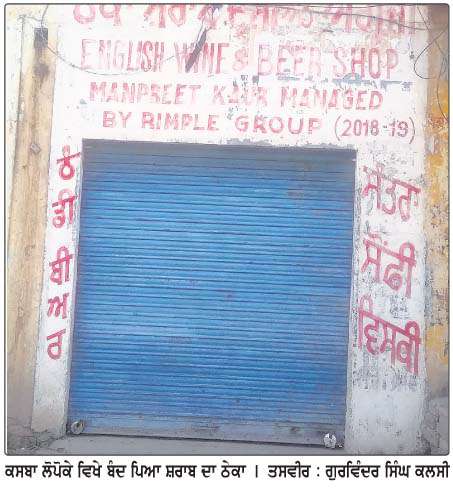 ENGLISH WINE & BEER SHOP
MANPREET KAUR MANAGED
BY RIMPLE GROUP (2018-19)
ਠੰਡੀ ਬੀਅਰ
ਸੰਤਰਾ
ਸੌਂਫੀ
ਵਿਸਕੀ
ਕਸਬਾ ਲੋਪੋਕੇ ਵਿਖੇ ਬੰਦ ਪਿਆ ਸ਼ਰਾਬ ਦਾ ਠੇਕਾ । ਤਸਵੀਰ : ਗੁਰਵਿੰਦਰ ਸਿੰਘ ਕਲਸੀ